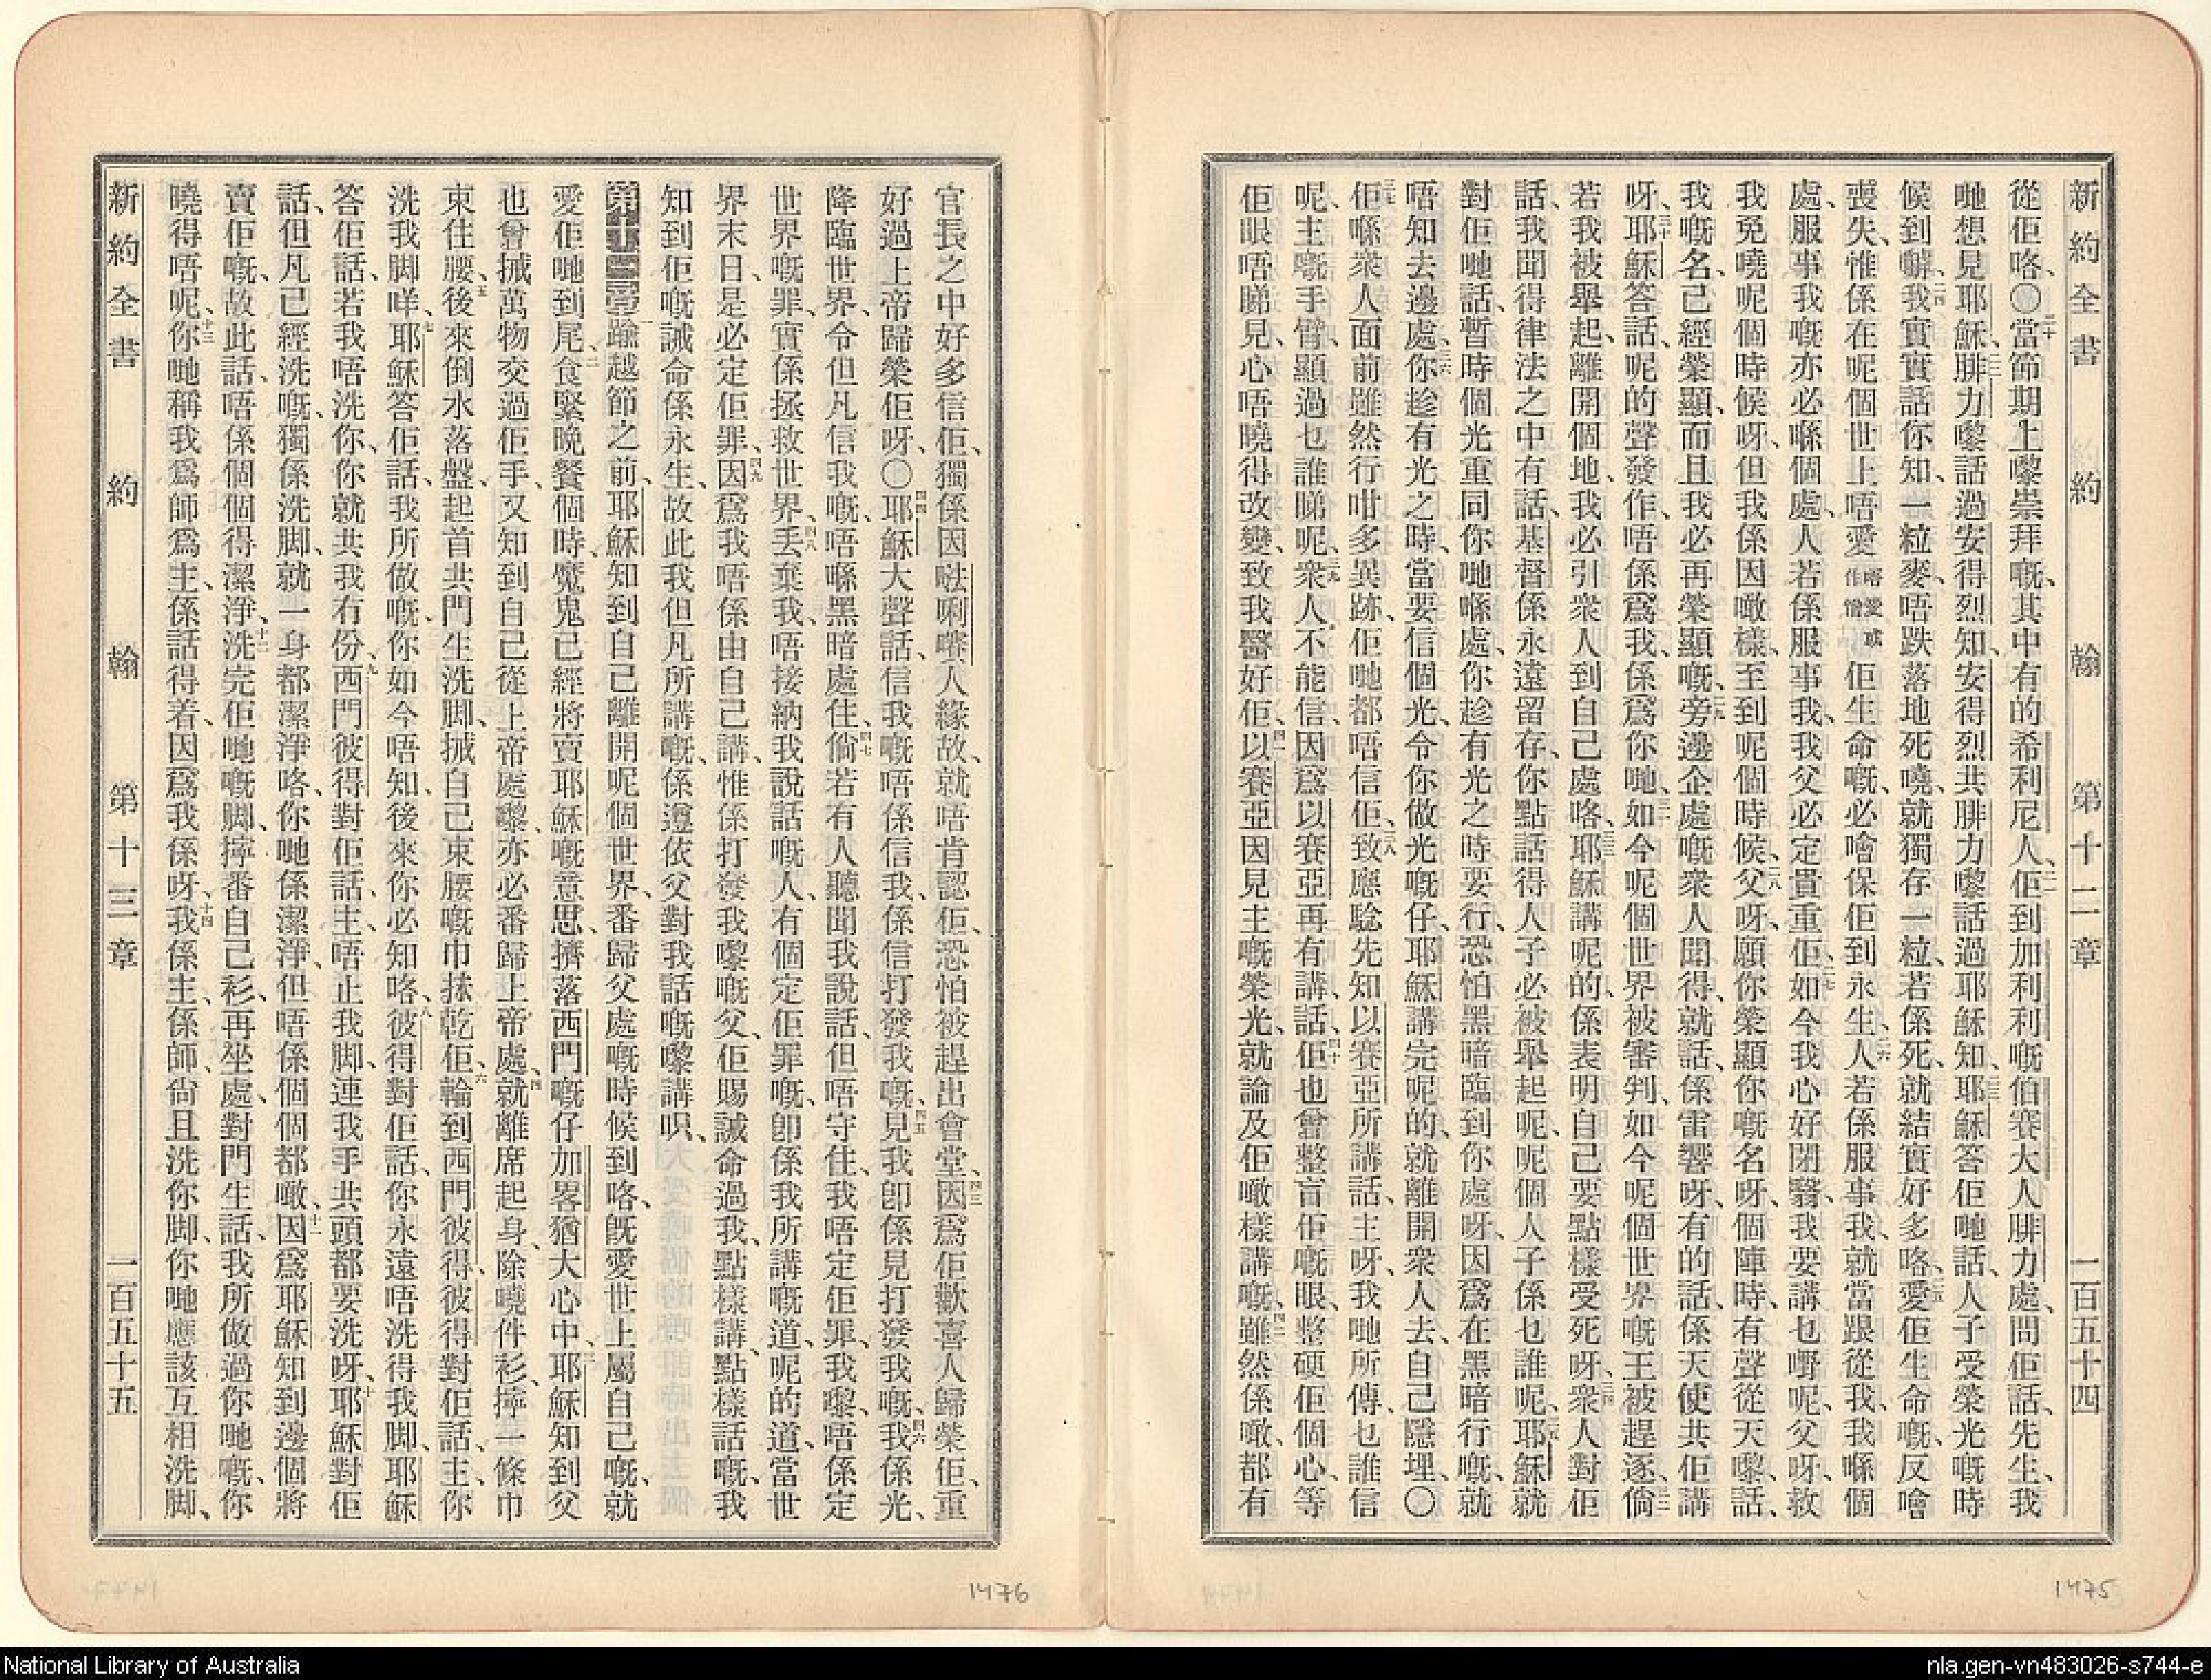 新約全書 約翰 第十二章 一百五十四
從佢咯、○二十當節期上嚟崇拜嘅、其中有的希利尼人、二一佢到加利利嘅伯賽大人腓力處、問佢話、先生、我
哋想見耶穌、二二腓力嚟話過安得烈知、安得烈共腓力嚟話過耶穌知、二三耶穌答佢哋話、人子受榮光嘅時
候到嘞、二四我實實話你知、一粒麥、唔跌落地死嘵、就獨存一粒、若係死、就結實好多咯、二五愛佢生命嘅、反噲
喪失、惟係在呢個世上唔愛唔愛或作憎佢生命嘅、必噲保佢到永生、二六人若係服事我、就當跟從我、我喺個
處、服事我嘅亦必喺個處、人若係服事我、我父必定貴重佢、二七如今我心好閉翳、我要講乜嘢呢、父呀、救
我免嘵呢個時候呀、但我係因噉樣、至到呢個時候、二八父呀、願你榮顯你嘅名呀、個陣時、有聲從天嚟話、
我嘅名、已經榮顯、而且我必再榮顯嘅、二九旁邊企處嘅衆人聞得、就話、係雷響呀、有的話、係天使共佢講
呀、三十耶穌答話、呢的聲發作、唔係爲我、係爲你哋、三一如今呢個世界被審判、如今呢個世界嘅王被趕逐、三二倘
若我被舉起、離開個地、我必引衆人到自己處咯、三三耶穌講呢的、係表明自己要點樣受死呀、三四衆人對佢
話、我聞得律法之中有話、基督係永遠留存、你點話得人子必被舉起呢、呢個人子係乜誰呢、三五耶穌就
對佢哋話、暫時個光重同你哋喺處、你趁有光之時要行、恐怕黑暗臨到你處呀、因爲在黑暗行嘅、就
唔知去邊處、三六你趁有光之時、當要信個光、令你做光嘅仔、耶穌講完呢的、就離開衆人去、自己隱埋、○
三七佢喺衆人面前雖然行咁多異跡、佢哋都唔信佢、三八致應驗先知以賽亞所講話、主呀、我哋所傳、乜誰信
呢、主嘅手臂、顯過乜誰睇呢、三九衆人不能信、因爲以賽亞再有講、話、四十佢也曾整盲佢嘅眼、整硬佢個心、等
佢眼唔睇見、心唔曉得改變、致我醫好佢、四一以賽亞因見主嘅榮光、就論及佢噉樣講嘅、四二雖然係噉、都有
1475
官長之中好多信佢、獨係因𠵽唎嚌人緣故、就唔肯認佢、恐怕被趕出會堂、四三因爲佢歡喜人歸榮佢、重
好過上帝歸榮佢呀、○四四耶穌大聲話、信我嘅、唔係信我、係信打發我嘅、四五見我卽係見打發我嘅、四六我係光、
降臨世界、令但凡信我嘅、唔喺黑暗處住、四七倘若有人聽聞我說話、但唔守住、我唔定佢罪、我嚟、唔係定
世界嘅罪、實係拯救世界、四八丢棄我、唔接納我說話嘅人、有個定佢罪嘅、卽係我所講嘅道、呢的道、當世
界末日、是必定佢罪、四九因爲我唔係由自己講、惟係打發我嚟嘅父、佢賜誡命過我、點樣講、點樣話嘅、我
知到佢嘅誡命係永生、故此我但凡所講嘅、係遵依父對我話嘅嚟講呮、
第十三章一踰越節之前、耶穌知到自己離開呢個世界、番歸父處嘅時候到咯、旣愛世上屬自己嘅、就
愛佢哋到尾、二食緊晚餐個時、魔鬼已經將賣耶穌嘅意思、擠落西門嘅仔加畧猶大心中、三耶穌知到父
也曾揻萬物交過佢手、又知到自己從上帝處嚟、亦必番歸上帝處、四就離席起身、除嘵件衫、擰一條巾
束住腰、五後來倒水落盤、起首共門生洗脚、揻自己束腰嘅巾抹乾佢、六輪到西門彼得、彼得對佢話、主、你
洗我脚咩、七耶穌答佢話、我所做嘅、你如今唔知、後來你必知咯、八彼得對佢話、你永遠唔洗得我脚、耶穌
答佢話、若我唔洗你、你就共我有份、九西門彼得對佢話、主、唔止我脚、連我手共頭都要洗呀、十耶穌對佢
話、但凡已經洗嘅、獨係洗脚、就一身都潔淨咯、你哋係潔淨、但唔係個個都噉、十一因爲耶穌知到邊個將
賣佢嘅、故此話、唔係個個得潔淨、十二洗完佢哋嘅脚、擰番自己衫、再坐處、對門生話、我所做過你哋嘅、你
曉得唔呢、十三你哋稱我爲師爲主、係話得着、因爲我係呀、十四我係主、係師、尙且洗你脚、你哋應該互相洗脚、
新約全書 約翰 第十三章 一百五十五
1476
National Library of Australia
nla.gen-vn483026-s744-e